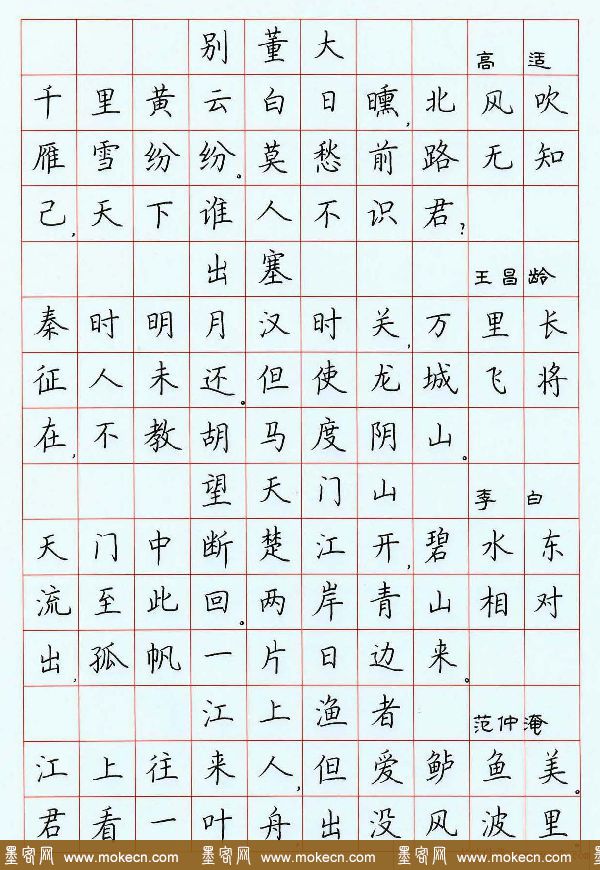 别董大 高适
千里黄云白日曛,北风吹
雁雪纷纷。莫愁前路无知
己,天下谁人不识君?
出塞 王昌龄
秦时明月汉时关,万里长
征人未还。但使龙城飞将
在,不教胡马度阴山。
望天门山 李白
天门中断楚江开,碧水东
流至此回。两岸青山相对
出,孤帆一片日边来。
江上渔者 范仲淹
江上往来人,但爱鲈鱼美。
君看一叶舟,出没风波里。
墨客网 www.mokecn.com 墨客网 www.mokecn.com 墨客网 www.mokecn.com